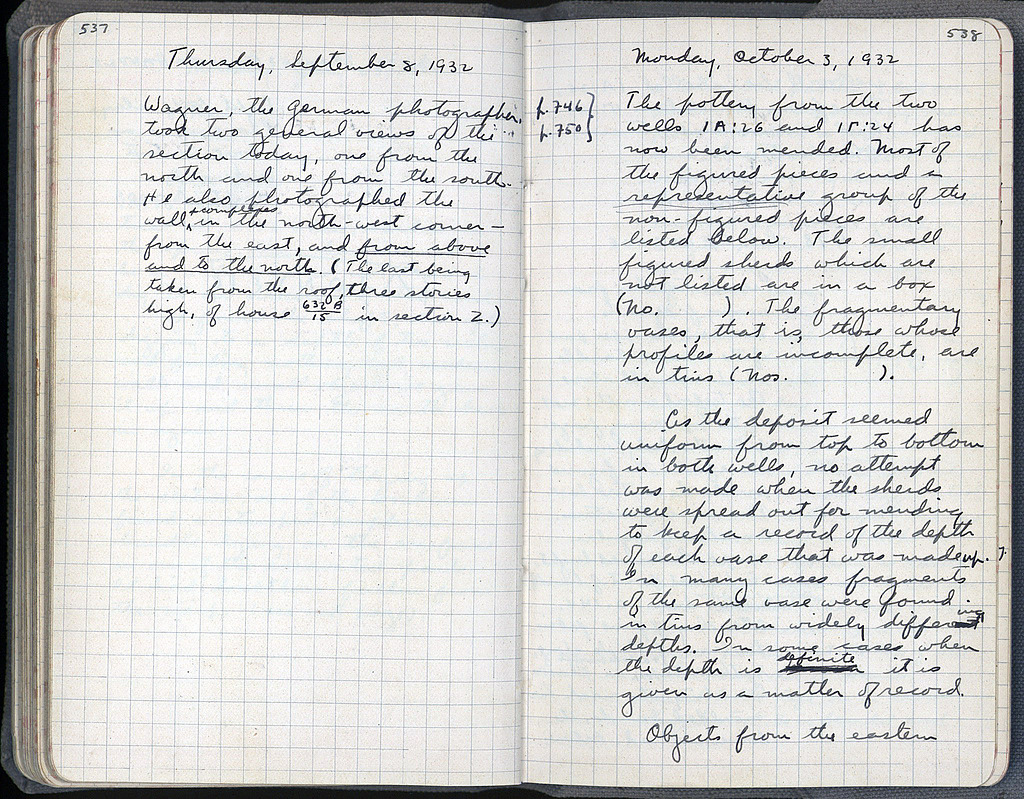 537
Thursday, September 8, 1932
Wagner, the German photographer,
took two general views of the
section today, one from the
north and one from the south.
He also photographed the
wall complexes in the north-west corner –
from the east, and from above
and to the north. (The last being
taken from the roof, three stories
high, of house 632B/15 in section Z.)
538
Monday, October 3, 1932
p. 746}
p. 750}
The pottery from the two
wells 1A:26 and 1Γ:24 has
now been mended. Most of
the figured pieces and a
representative group of the
non-figured pieces are
listed below. The small
figured sherds which are
not listed are in a box
(No. ). The fragmentary
vases, that is, those whose
profiles are incomplete, are
in tins (Nos. ).
As the deposit seemed
uniform from top to bottom
in both wells, no attempt
was made when the sherds
were spread out for mending
to keep a record of the depth
of each vase that was made up.
In many cases fragments
of the same vase were found
in tins from widely differing
depths. In some cases when
the depth is definite it is
given as a matter of record.
Objects from the eastern